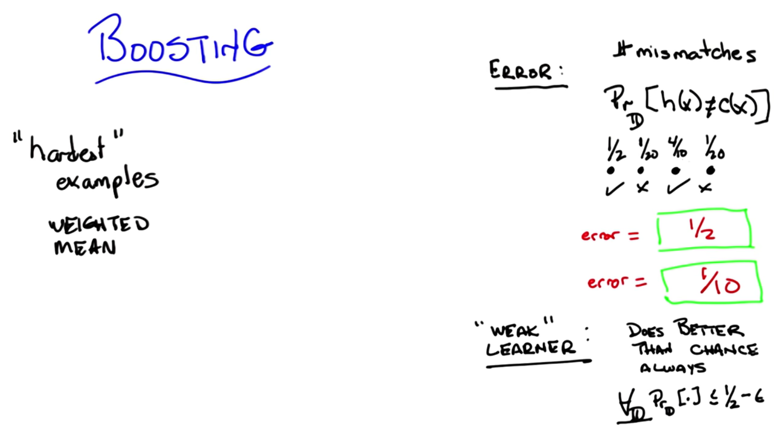 BOOSTING
"hardest"
examples
WEIGHTED
MEAN
ERROR:
# mismatches
Pr_D [h(x) ≠ c(x)]
1/2 1/20 4/10 1/20
✓ x ✓ x
error = 1/2
error = 1/10
"WEAK"
LEARNER:
DOES BETTER
THAN CHANCE
ALWAYS
∀_D Pr_D [·] ≤ 1/2 - ϵ